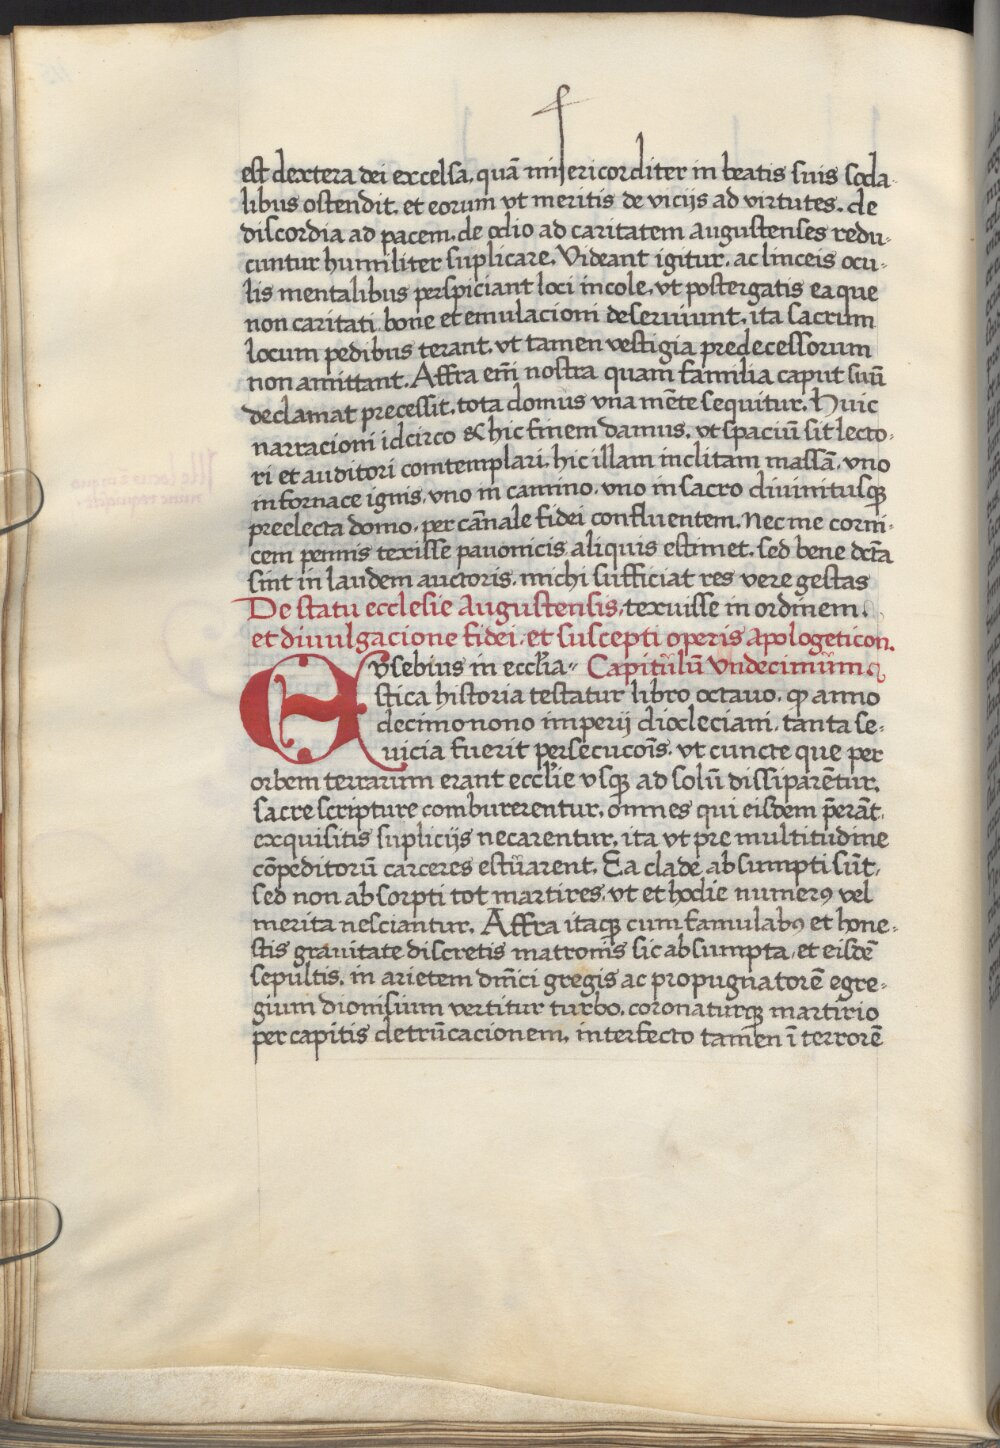 est dextera dei excelsa, quā misericorditer in beatis suis soda
libus ostendit. et eorum vt meritis de vicijs ad virtutes. de
discordia ad pacem. de odio ad caritatem augustenses redu-
cuntur humiliter suplicare. Videant igitur. ac linceis ocu-
lis mentalibus perspiciant loci incole. vt postergatis ea que
non caritati bone et emulacioni deseruiunt. ita sacrum
locum pedibus terant. vt tamen vestigia predecessorum
non amittant. Affra em̄ nostra quam familia caput suū
declamat precessit. tota domus vna mēte sequitur. Huic
narracioni idcirco & hic finem damus. vt spaciū sit lecto-
ri et auditori comtemplari. hic illam inclitam massā. vno
in fornace ignis. vno in camino. vno in sacro diuinitusqꝫ
preelecta domo. per cānale fidei confluentem. Nec me corni-
cem pennis texisse pauonicis aliquis estimet. sed bene dcta
sint in laudem auctoris. michi sufficiat res vere gestas
De statu ecclesie augustensis, texuisse in ordinem.
et diuulgacione fidei. et suscepti operis apologeticon.
Evsebius in ecclia- Capitulū vndecimum.
stica historia testatur libro octauo. ꝙ anno
decimonono imperij diocleciani. tanta se-
uicia fuerit persecucoīs. vt cuncte que per
orbem terrarum erant ecclie vsqꝫ ad solū dissiparētur.
sacre scripture comburerentur. omnes qui eisdem p̄erāt.
exquisitis suplicijs necarentur. ita vt pre multitudine
cōpeditorū carceres estuarent. Ea clade absumpti sūt.
sed non absorpti tot martires. vt et hodie numerꝯ vel
merita nesciantur. Affra itaqꝫ cum famulabꝯ et hone-
stis grauitate discretis matronis sic absumpta. et eisdē
sepultis. in arietem dn̄ici gregis ac propugnatorē egre-
gium dionisium vertitur turbo. coronaturqꝫ martirio
per capitis detrūcacionem. interfecto tamen ī terrorē